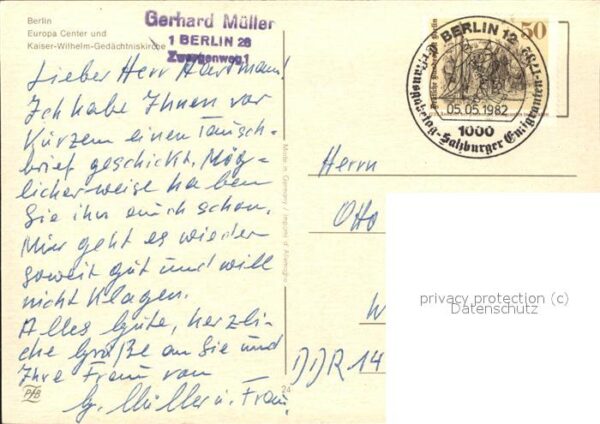 Berlin
Europa Center und
Kaiser-Wilhelm-Gedächtniskirche
Gerhard Müller
1 BERLIN 28
Zwergenweg 1
BERLIN 12
50
05.05.1982
1000
Ersttag
Salzburger Emigranten
Lieber Herr Hartmann!
Ich habe Ihnen vor
Kurzem einen Tausch-
brief geschickt. Mög-
licherweise haben
Sie ihn auch schon.
Mir geht es wieder
soweit gut und will
nicht klagen.
Alles Gute, herzli-
che Grüße an Sie und
Ihre Frau von
G. Müller u. Frau
Made in Germany / Importé d'Allemagne
24
PfB
Herrn
Otto
W
DDR 14
privacy protection (c)
Datenschutz